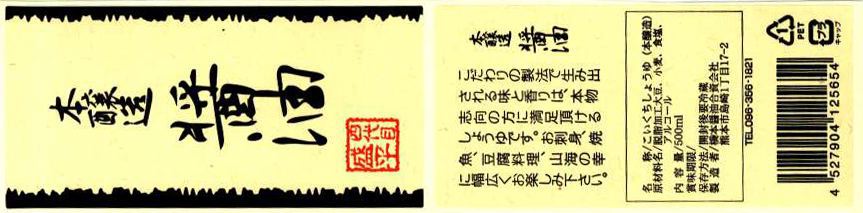 本醸造
醤油
四代目
盛平
本醸造
醤油
こだわりの製法で生み出
される味と香りは、本物
志向の方に満足頂ける
しょうゆです。お刺身、焼
魚、豆腐料理、山海の幸
に幅広くお楽しみ下さい。
名称/こいくちしょうゆ(本醸造)
原材料名/脱脂加工大豆、小麦、食塩、
アルコール
内容量/500ml
賞味期限/
保存方法/開封後要冷蔵
製造者/橋本醤油合資会社
熊本市島崎1丁目17-2
TEL096-356-1821
PET
プラ
キャップ
4 527904 125654